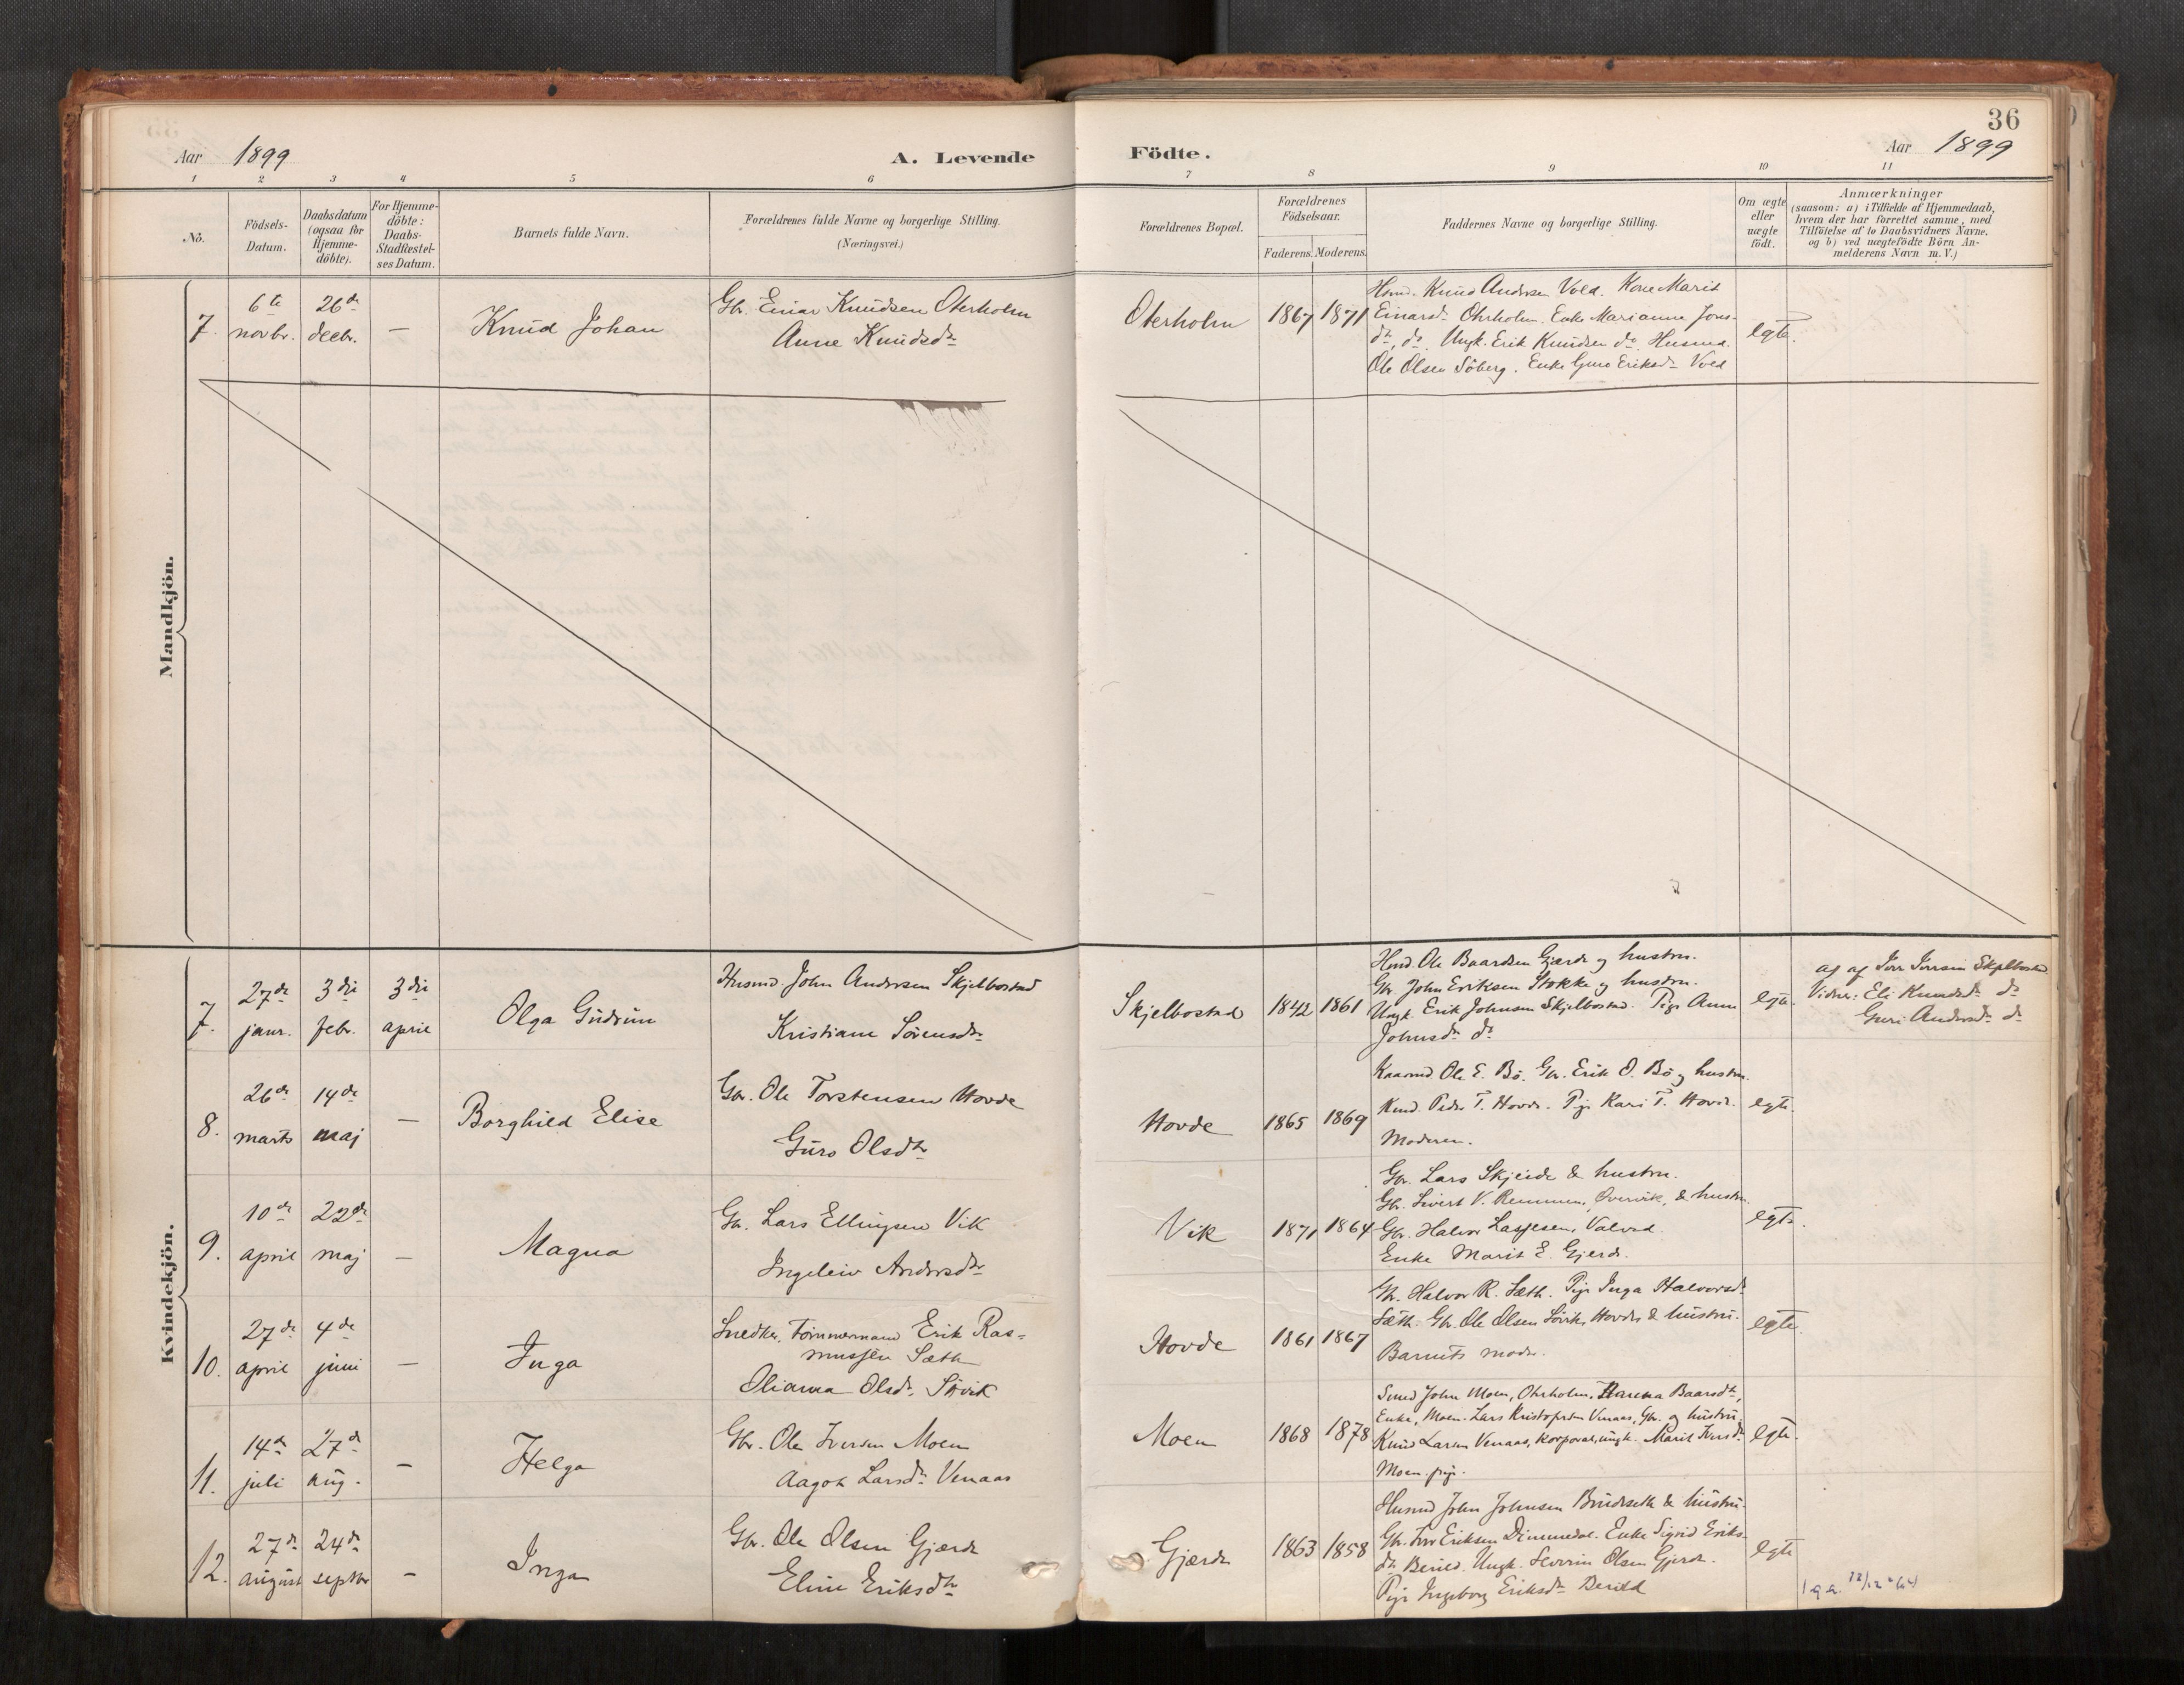 36
Aar 1899
A. Levende
Födte.
Aar 1899
1 2 3 4 5 6 7 8 9 10 11
No.
Födsels-
Datum.
Daabsdatum
(ogsaa for
Hjemme-
döbte).
For Hjemme-
döbte:
Daabs-
Stadfæstel-
ses Datum.
Barnets fulde Navn.
Forældrenes fulde Navne og borgerlige Stilling.
(Næringsvei.)
Forældrenes Bopæl.
Forældrenes
Födselsaar.
Faderens. Moderens.
Faddernes Navne og borgerlige Stilling.
Om ægte
eller
uægte
födt.
Anmærkninger
(saasom: a) i Tilfælde af Hjemmedaab,
hvem der har forrettet samme, med
Tilföielse af to Daabsvidners Navne.
og b) ved uægtefödte Börn An-
melderens Navn m. V.)
Mandkjön.
7.
6te
novbr.
26de
decbr.
—
Knud Johan
Gbr. Einar Knudsen Oterholm
Anne Knudsdtr
Oterholm
1867 1871
Husmd. Knud Andersen Vold. Kone Marit
Einarsdr Ohrholm. Enke Marianne Jons-
dtr, do. Ungk. Erik Knudsen do Husmd.
Ole Olsen Söberg. Enke Guro Eriksdr Vold
egte.
Kvindekjön.
7.
27de
janr.
3die
febr.
3die
april
Olga Gudrun
Husmd. John Andersen Skjelbostad
Kristiane Sörensdtr
Skjelbostad
1842 1861
Husmd. Ole Baardsen Gjærde og hustru.
Gbr. John Eriksen Stokke og hustru.
Ungk. Erik Johnsen Skjelbostad. Pige Anne
Johnsdr do
egte.
Vidner: Eli Knudsdr do
Guri Andersdr do
8.
26de
marts
14de
maj
—
Borghild Elise
Gbr. Ole Torstensen Hovde
Guro Olsdtr
Hovde
1865 1869
Kaarmd Ole E. Bö. Gbr. Erik O. Bö og hustru.
Peder T. Hovde. Pige Kari T. Hovde.
Moderen.
egte.
9.
10de
april
22de
maj
—
Magna
Gbr. Lars Ellingsen Vik
Ingeleiv Andersdtr
Vik
1871 1864
Gbr. Lars Skjeide & hustru.
Gbr. Sivert V. Remmen, Övervik, & hustru.
Gbr. Halvor Lassesen, Valved.
Enke Marit E. Gjerde.
egte.
10.
27de
april
4de
juni
—
Inga
Snedker, Tömmermand Erik Ras-
mussen Sæth
Oliana Olsdr. Sörvik
Hovde
1861 1867
Gbr. Halvor R. Sæth. Pige Inga Halvorsdr
Sæth. Gbr. Ole Olsen Hovde & hustru.
Barnets moder.
egte.
11.
14de
juli
27de
aug.
—
Helga
Gbr. Ole Iversen Moen
Aagot Larsdr. Venaas
Moen
1868 1878
Smed John Moen, Ohrholm. Hanna Baarsdtr,
Enke, Moen. Lars Kristofersen Venaas, Gbr. og hustru.
Knud Larsen Venaas, Korporal, ungk. Marit Iversdr
Moen. pige.
egte.
12.
27de
august
24de
septbr
—
Inga
Gbr. Ole Olsen Gjærde
Eline Eriksdtr
Gjærde
1863 1858
Husmd John Johnsen Brudeseth & hustru.
Gbr. Iver Eriksen Dimmedal. Enke Sigrid Eriks-
dtr Berild. Ungk. Severin Olsen Gjerde.
Pige Ingeborg Eriksdr Berild
egte